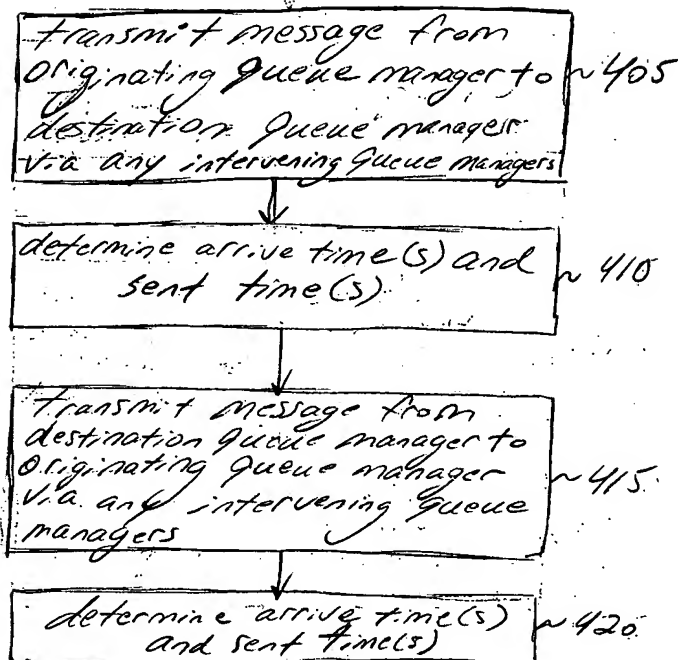 transmit message from
originating queue manager to ~ 405
destination queue manager
via any intervening queue managers
determine arrive time(s) and
sent time(s) ~ 410
transmit message from
destination queue manager to
originating queue manager
via any intervening queue ~ 415
managers
determine arrive time(s)
and sent time(s) ~ 420